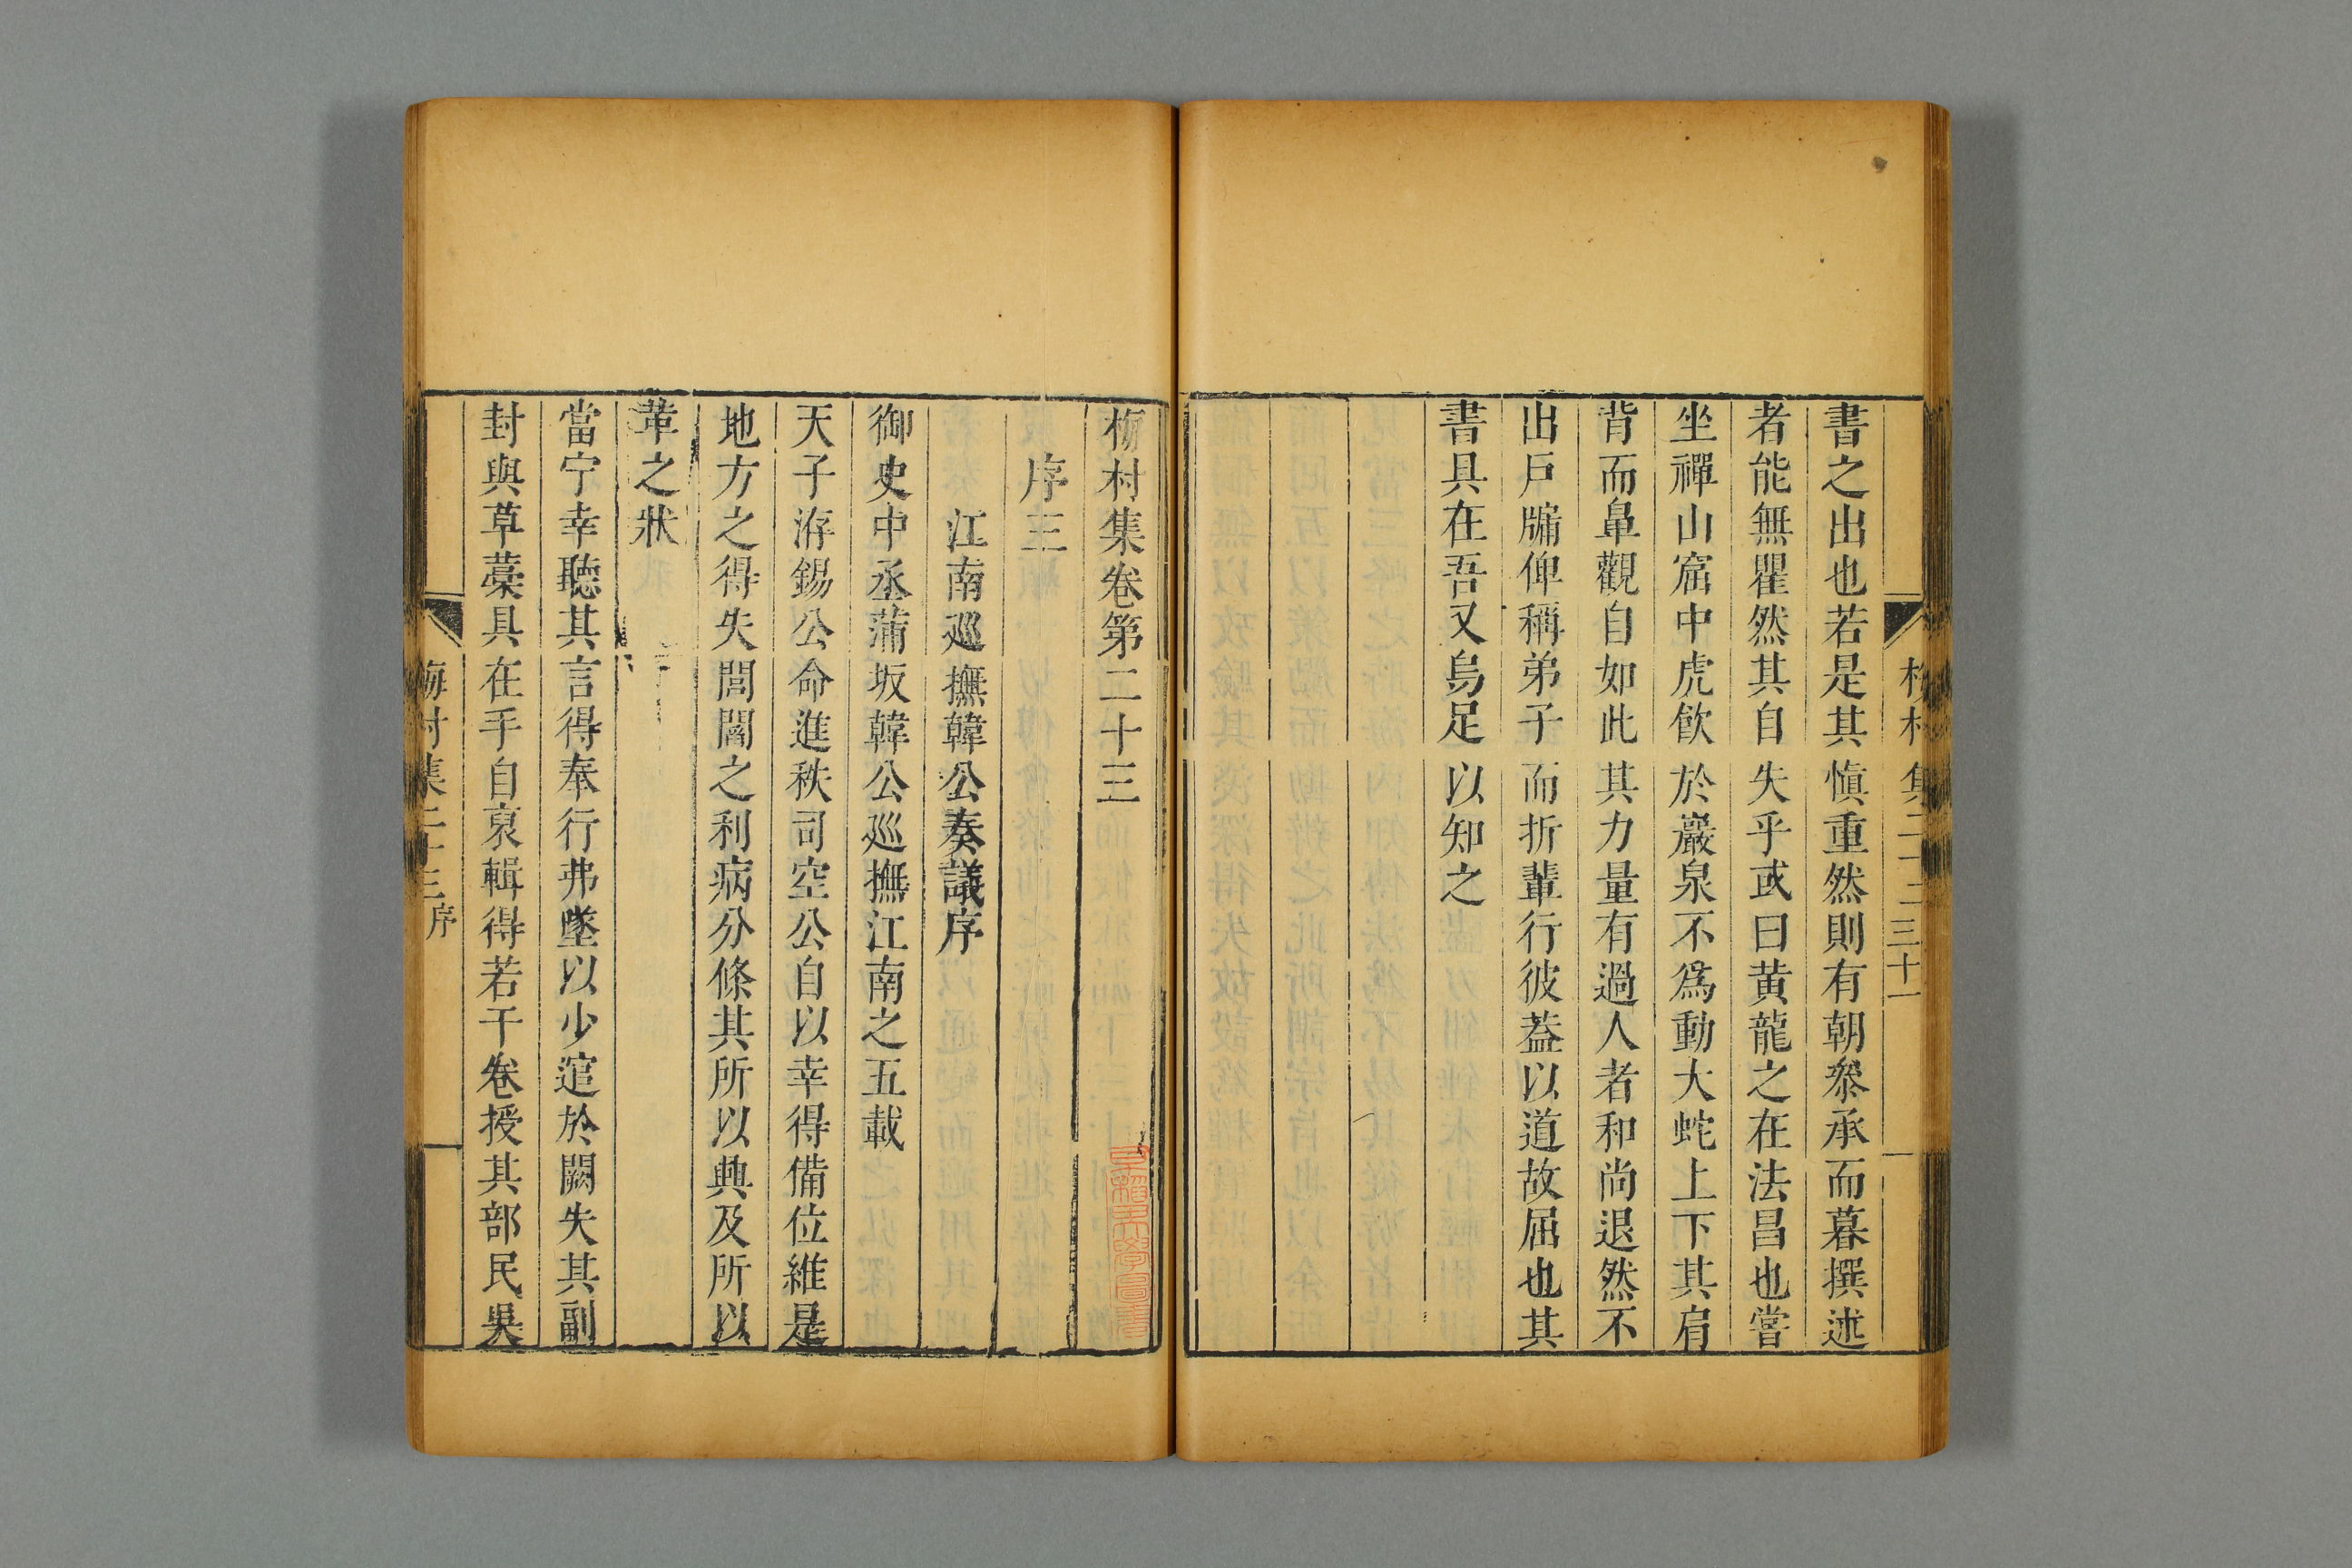 書之出也若是其慎重然則有朝叅承而暮撰述
者能無瞿然其自失乎或曰黄龍之在法昌也嘗
坐禪山窟中虎飲於巖泉不爲動大蛇上下其肩
背而鼻觀自如此其力量有過人者和尚退然不
出戸牖俾稱弟子而折輩行彼葢以道故屈也其
書具在吾又烏足以知之
梅村集卷第二十三
序三
江南廵撫韓公奏議序
御史中丞蒲坂韓公廵撫江南之五載
天子洊錫公命進秩司空公自以幸得備位維是
地方之得失閭閻之利病分條其所以興及所以
革之狀
當宁幸聽其言得奉行弗墜以少逭於闕失其副
封與草藁具在手自裒輯得若干卷授其部民吳
梅村集二十三 序